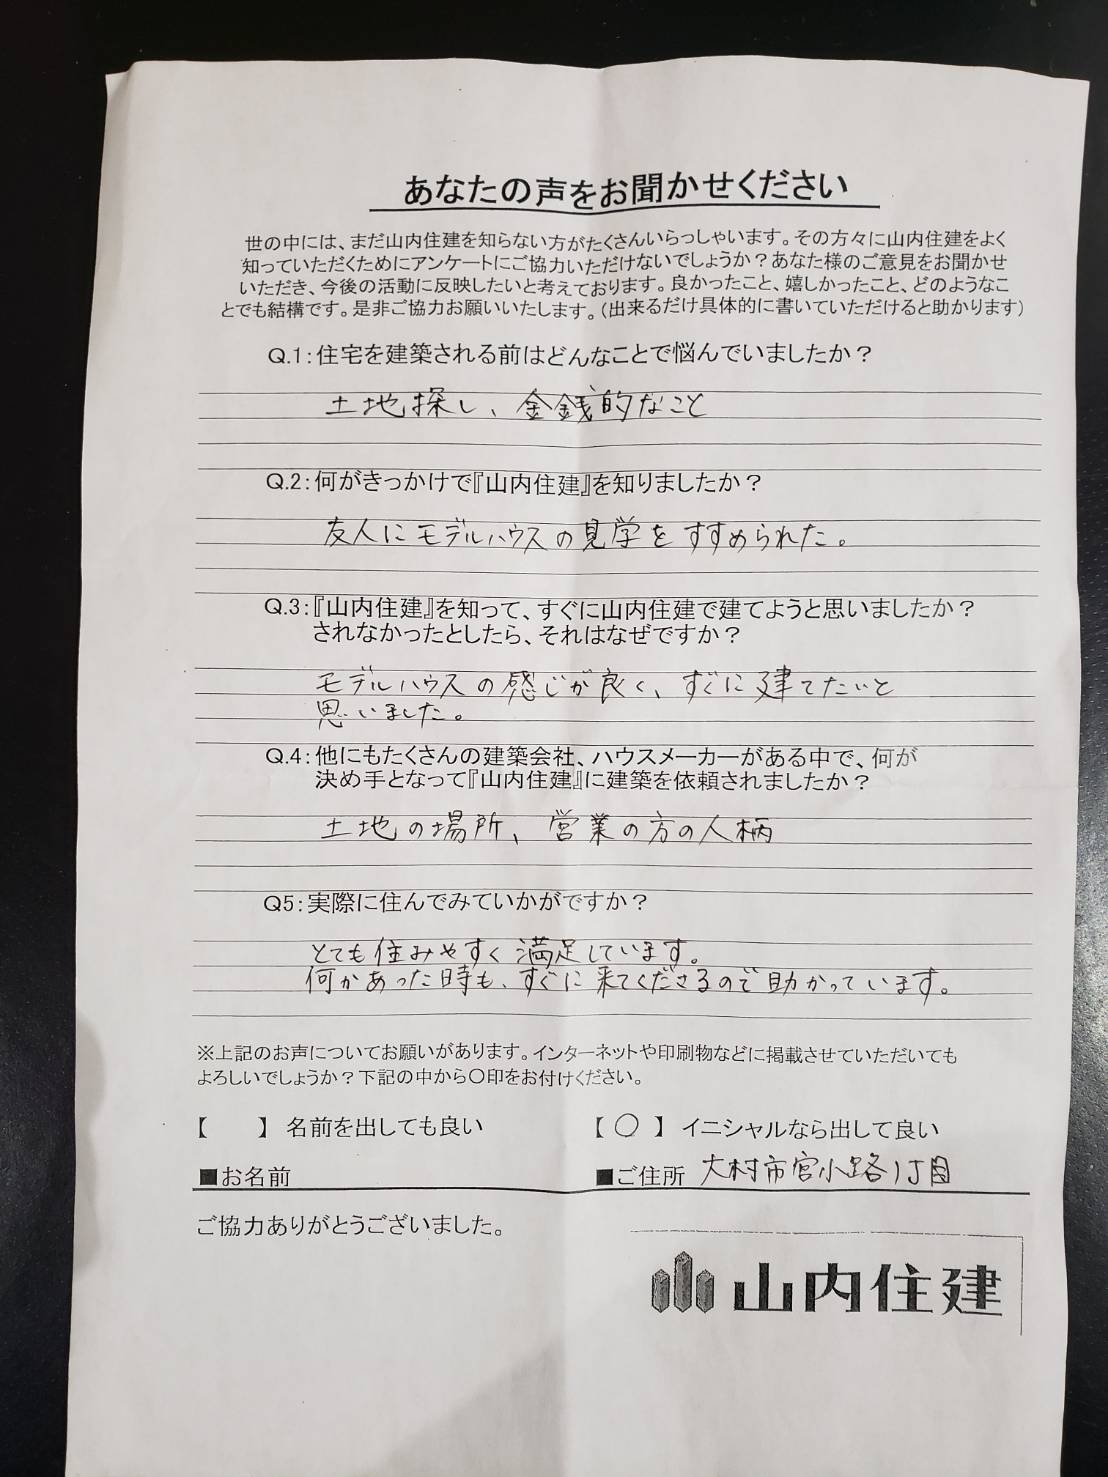 あなたの声をお聞かせください
世の中には、まだ山内住建を知らない方がたくさんいらっしゃいます。その方々に山内住建をよく
知っていただくためにアンケートにご協力いただけないでしょうか？あなた様のご意見をお聞かせ
いただき、今後の活動に反映したいと考えております。良かったこと、嬉しかったこと、どのようなこ
とでも結構です。是非ご協力お願いいたします。(出来るだけ具体的に書いていただけると助かります)
Q.1：住宅を建築される前はどんなことで悩んでいましたか？
土地探し、金銭的なこと
Q.2：何がきっかけで『山内住建』を知りましたか？
友人にモデルハウスの見学をすすめられた。
Q.3：『山内住建』を知って、すぐに山内住建で建てようと思いましたか？
されなかったとしたら、それはなぜですか？
モデルハウスの感じが良く、すぐに建てたいと
思いました。
Q.4：他にもたくさんの建築会社、ハウスメーカーがある中で、何が
決め手となって『山内住建』に建築を依頼されましたか？
土地の場所、営業の方の人柄
Q5：実際に住んでみていかがですか？
とても住みやすく満足しています。
何かあった時も、すぐに来てくださるので助かっています。
※上記のお声についてお願いがあります。インターネットや印刷物などに掲載させていただいても
よろしいでしょうか？下記の中から〇印をお付けください。
【　　】 名前を出しても良い　【 〇 】 イニシャルなら出して良い
■お名前　■ご住所 大村市宮小路1丁目
ご協力ありがとうございました。
山内住建